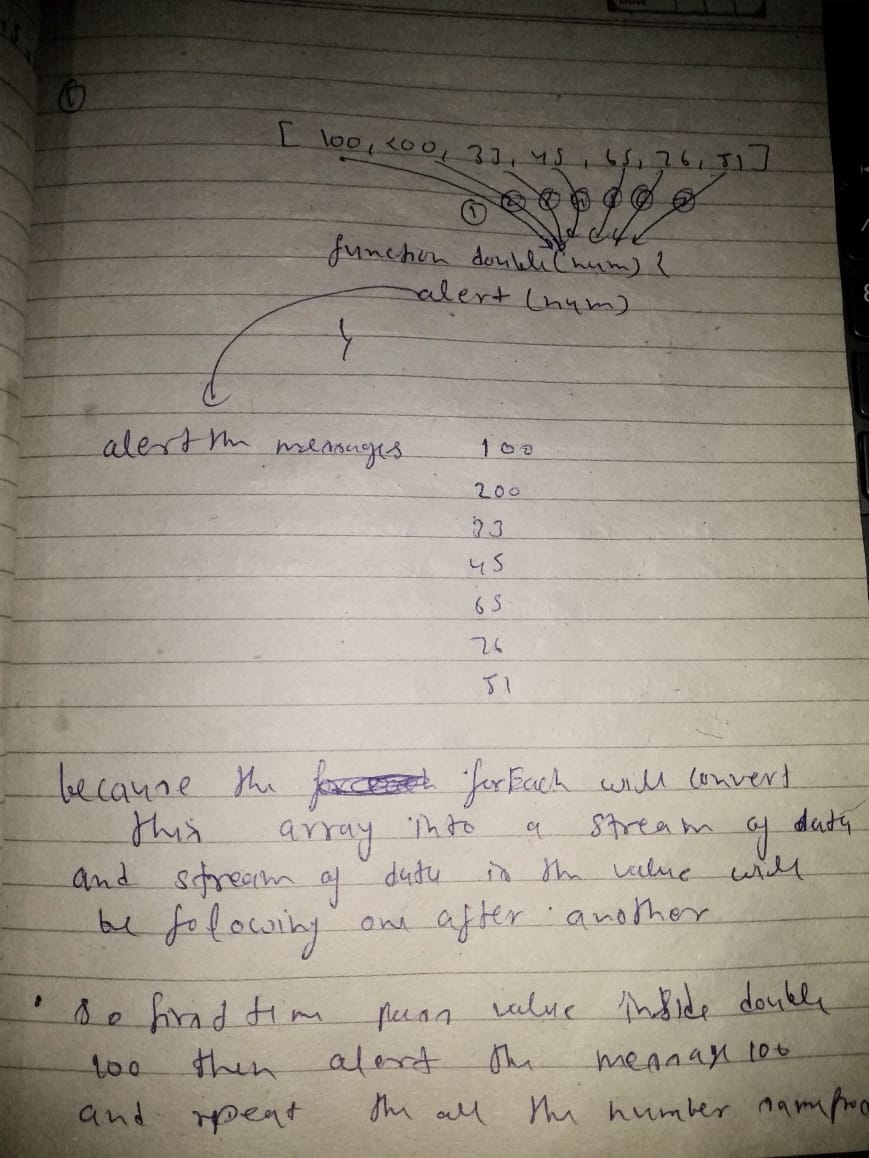 ①
[ 100, 200, 33, 45, 65, 26, 51 ]
①
function double(num) {
alert (num)
}
alert the messages 100
200
33
45
65
26
51
because the forEach will convert
this array into a stream of data
and stream of data is the value will
be following one after another
• So first time pass value inside double
100 then alert the message 100
and repeat the all the number same